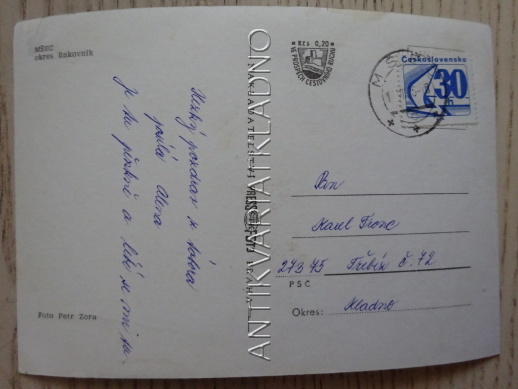 MŠEC
okres Rakovník
Hezký pozdrav z tábora
posílá Alena
je tu pěkně a líbí se mi tu.
Foto Petr Zora
ANTIKVARIATKLADNO
Kčs 0,20
VE PROSPĚCH CESTOVNÍHO RUCHU
Československo
30
h
MŠ
Pan
Karel Tronc
273 75 Třebíz č. 72
PSČ
Okres: Kladno